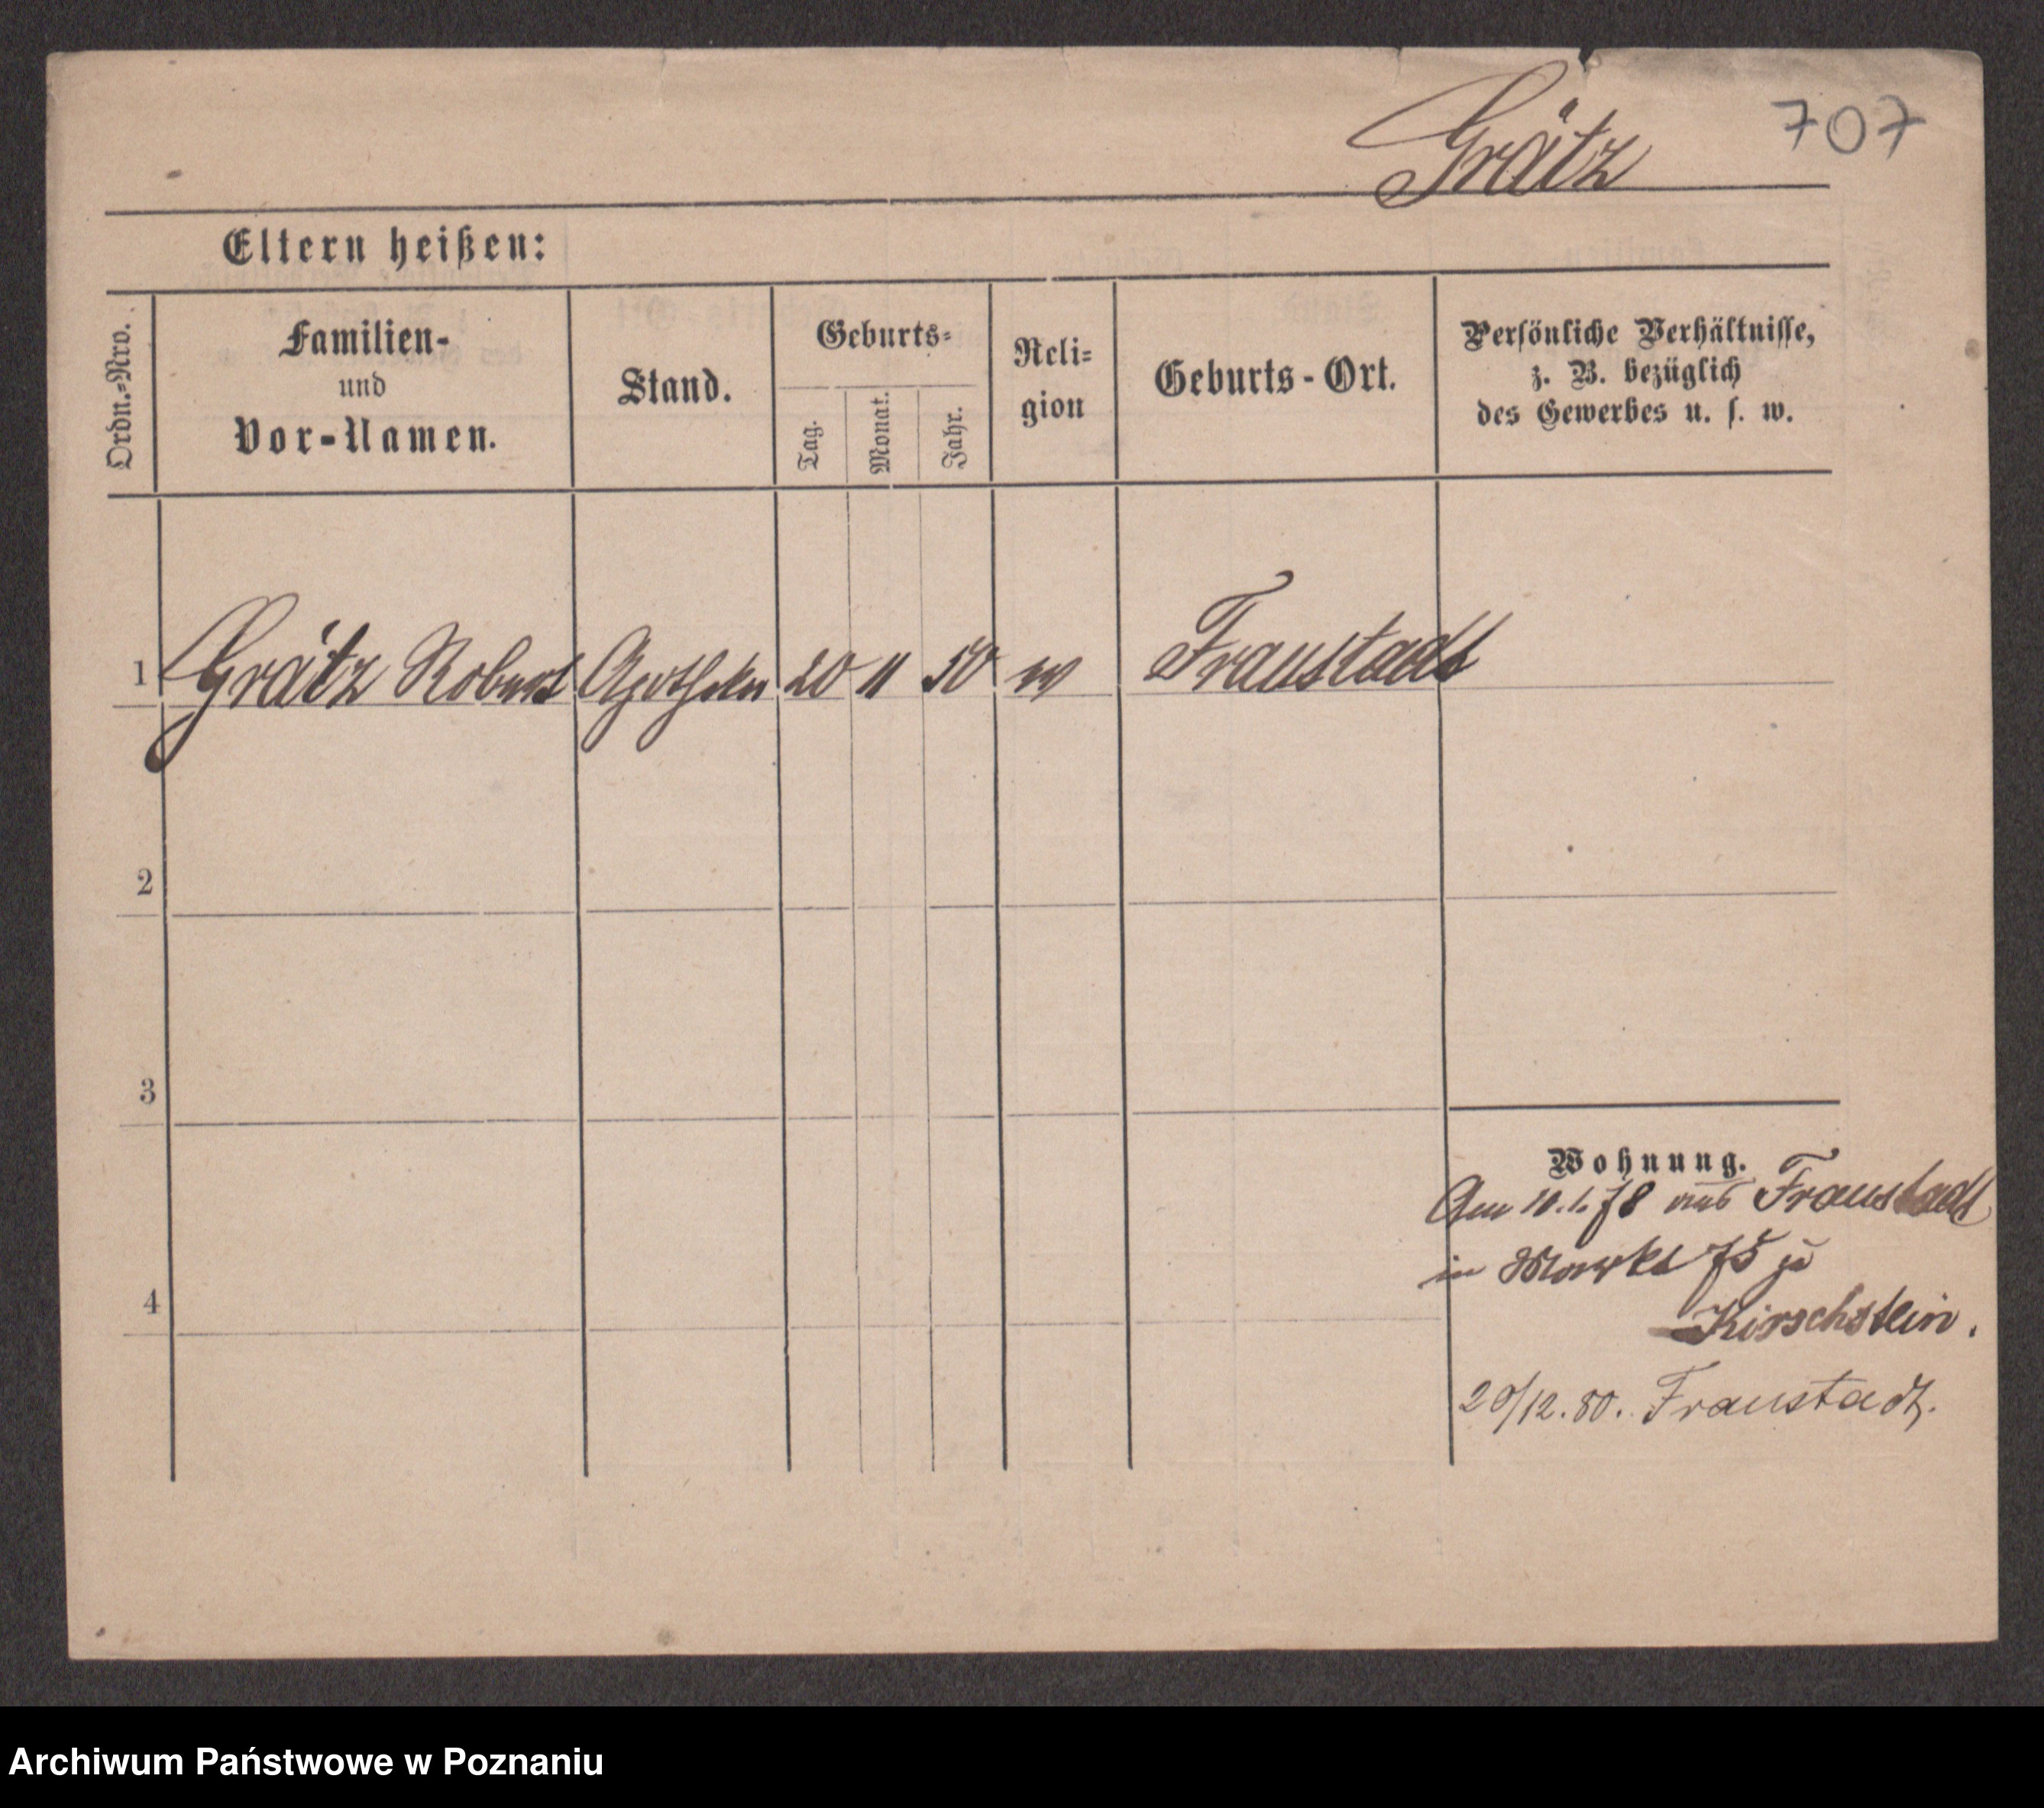 Grätz 707
Eltern heißen:
Ordn.-Nro.
Familien-
und
Vor-Namen.
Stand.
Geburts-
Tag.
Monat.
Jahr.
Reli-
gion
Geburts-Ort.
Persönliche Verhältnisse,
z. B. bezüglich
des Gewerbes u. s. w.
1 Grätz Robert Apotheker 20 11 50 Fraustadt
2
3
Wohnung.
Am 10.1.78 aus Fraustadt
in Markt 75 zu
4
Kirschstein.
20/12.80. Fraustadt.
Archiwum Państwowe w Poznaniu